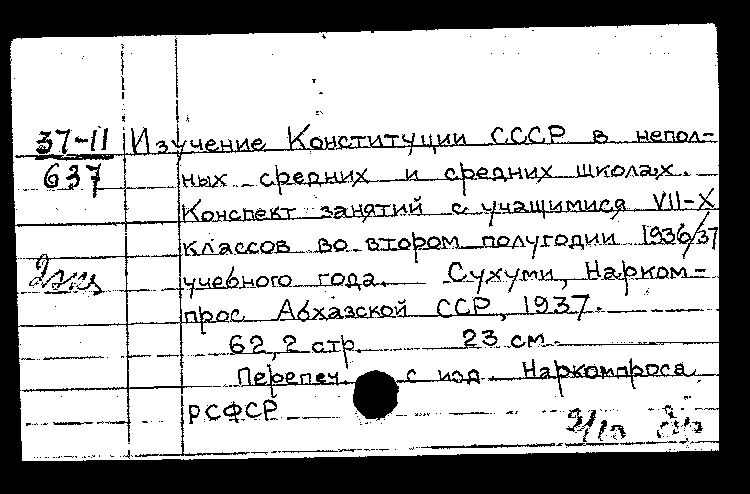 37-11 Изучение Конституции СССР в непол-
637 ных средних и средних школах.
Конспект занятий с учащимися VII-X
классов во втором полугодии 1936/37
учебного года. Сухуми, Нарком-
прос Абхазской ССР, 1937.
62, 2 стр. 23 см.
Перепеч. с изд. Наркомпроса
РСФСР